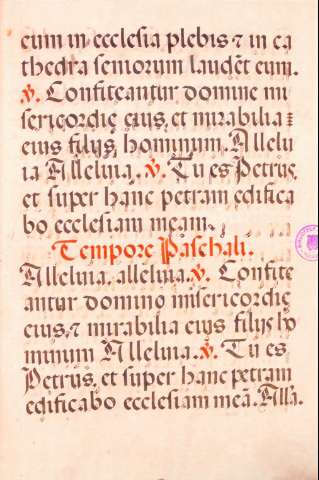 eum in ecclesia plebis ⁊ in ca
thedra seniorum laudēt eum.
℣. Confiteantur domine mi
sericordię eius, et mirabilia
eius filijs hominum. Allelu
ia Alleluia. ℣. Tu es Petrus,
et super hanc petram edifica
bo ecclesiam meam.
Tempore Paschali.
Alleluia. alleluia. ℣. Confite
antur domino misericordię
eius, ⁊ mirabilia eius filijs ho
minum Alleluia. ℣. Tu es
Petrus, et super hanc petram
edificabo ecclesiam meā. Alla.